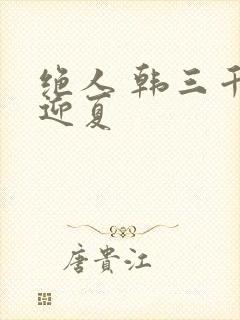 绝人 韩三千
迎夏
唐貴江